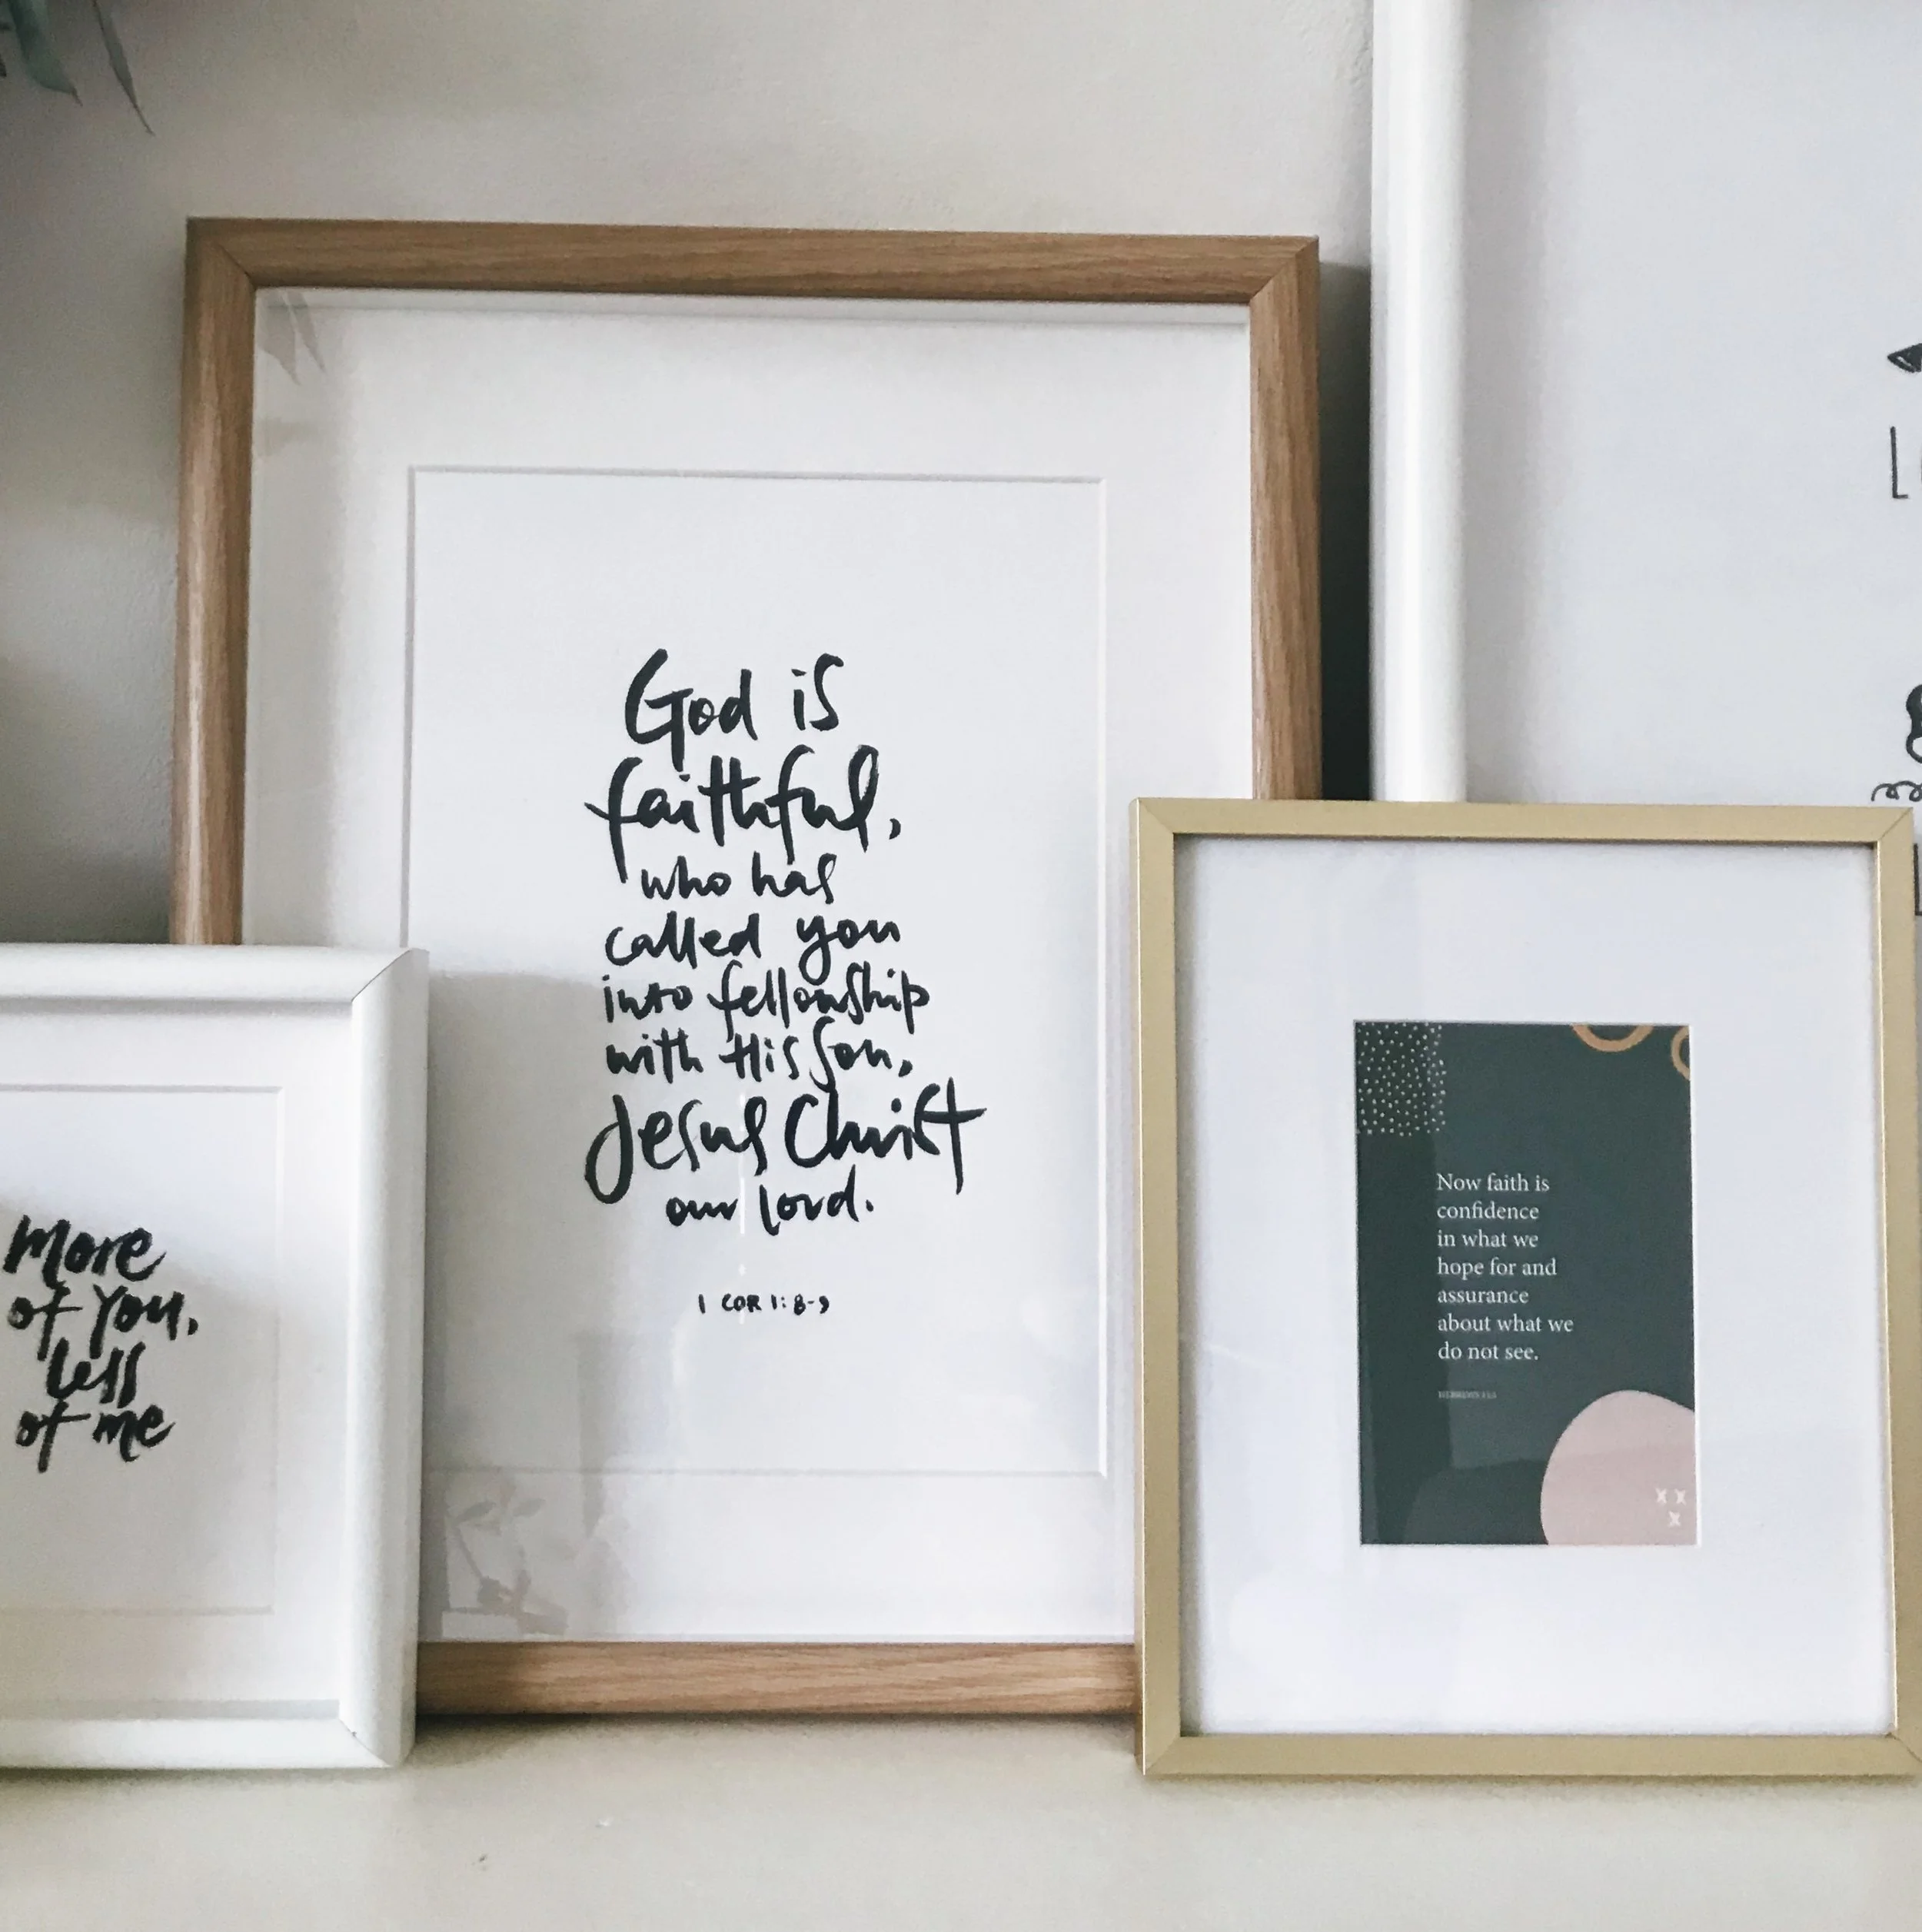 God is
faithful,
who has
called you
into fellowship
with His son,
Jesus Christ
our lord.
1 COR 1:8-9
More
of You,
less
of me
Now faith is
confidence
in what we
hope for and
assurance
about what we
do not see.